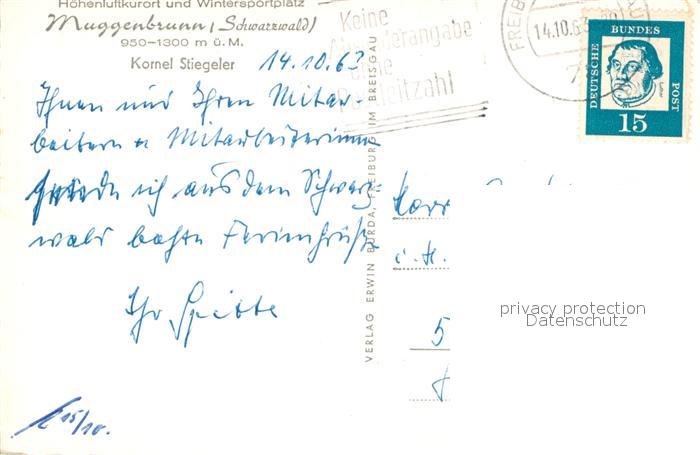 Höhenluftkurort und Wintersportplatz
Muggenbrunn (Schwarzwald)
950–1300 m ü. M.
Kornel Stiegeler
14.10.63
Ihnen und Ihren Mitar-
beitern u Mitarbeiterinnen
sende ich aus dem Schwarz-
wald beste Feriengrüße
Ihr Spitta
15/10.
VERLAG ERWIN BURDA, FREIBURG IM BREISGAU
Keine
Absenderangabe
ohne
Postleitzahl
FREIB
14.10.6
DEUTSCHE
BUNDES
POST
Luther
15
Herr
i. H.
5
privacy protection
Datenschutz